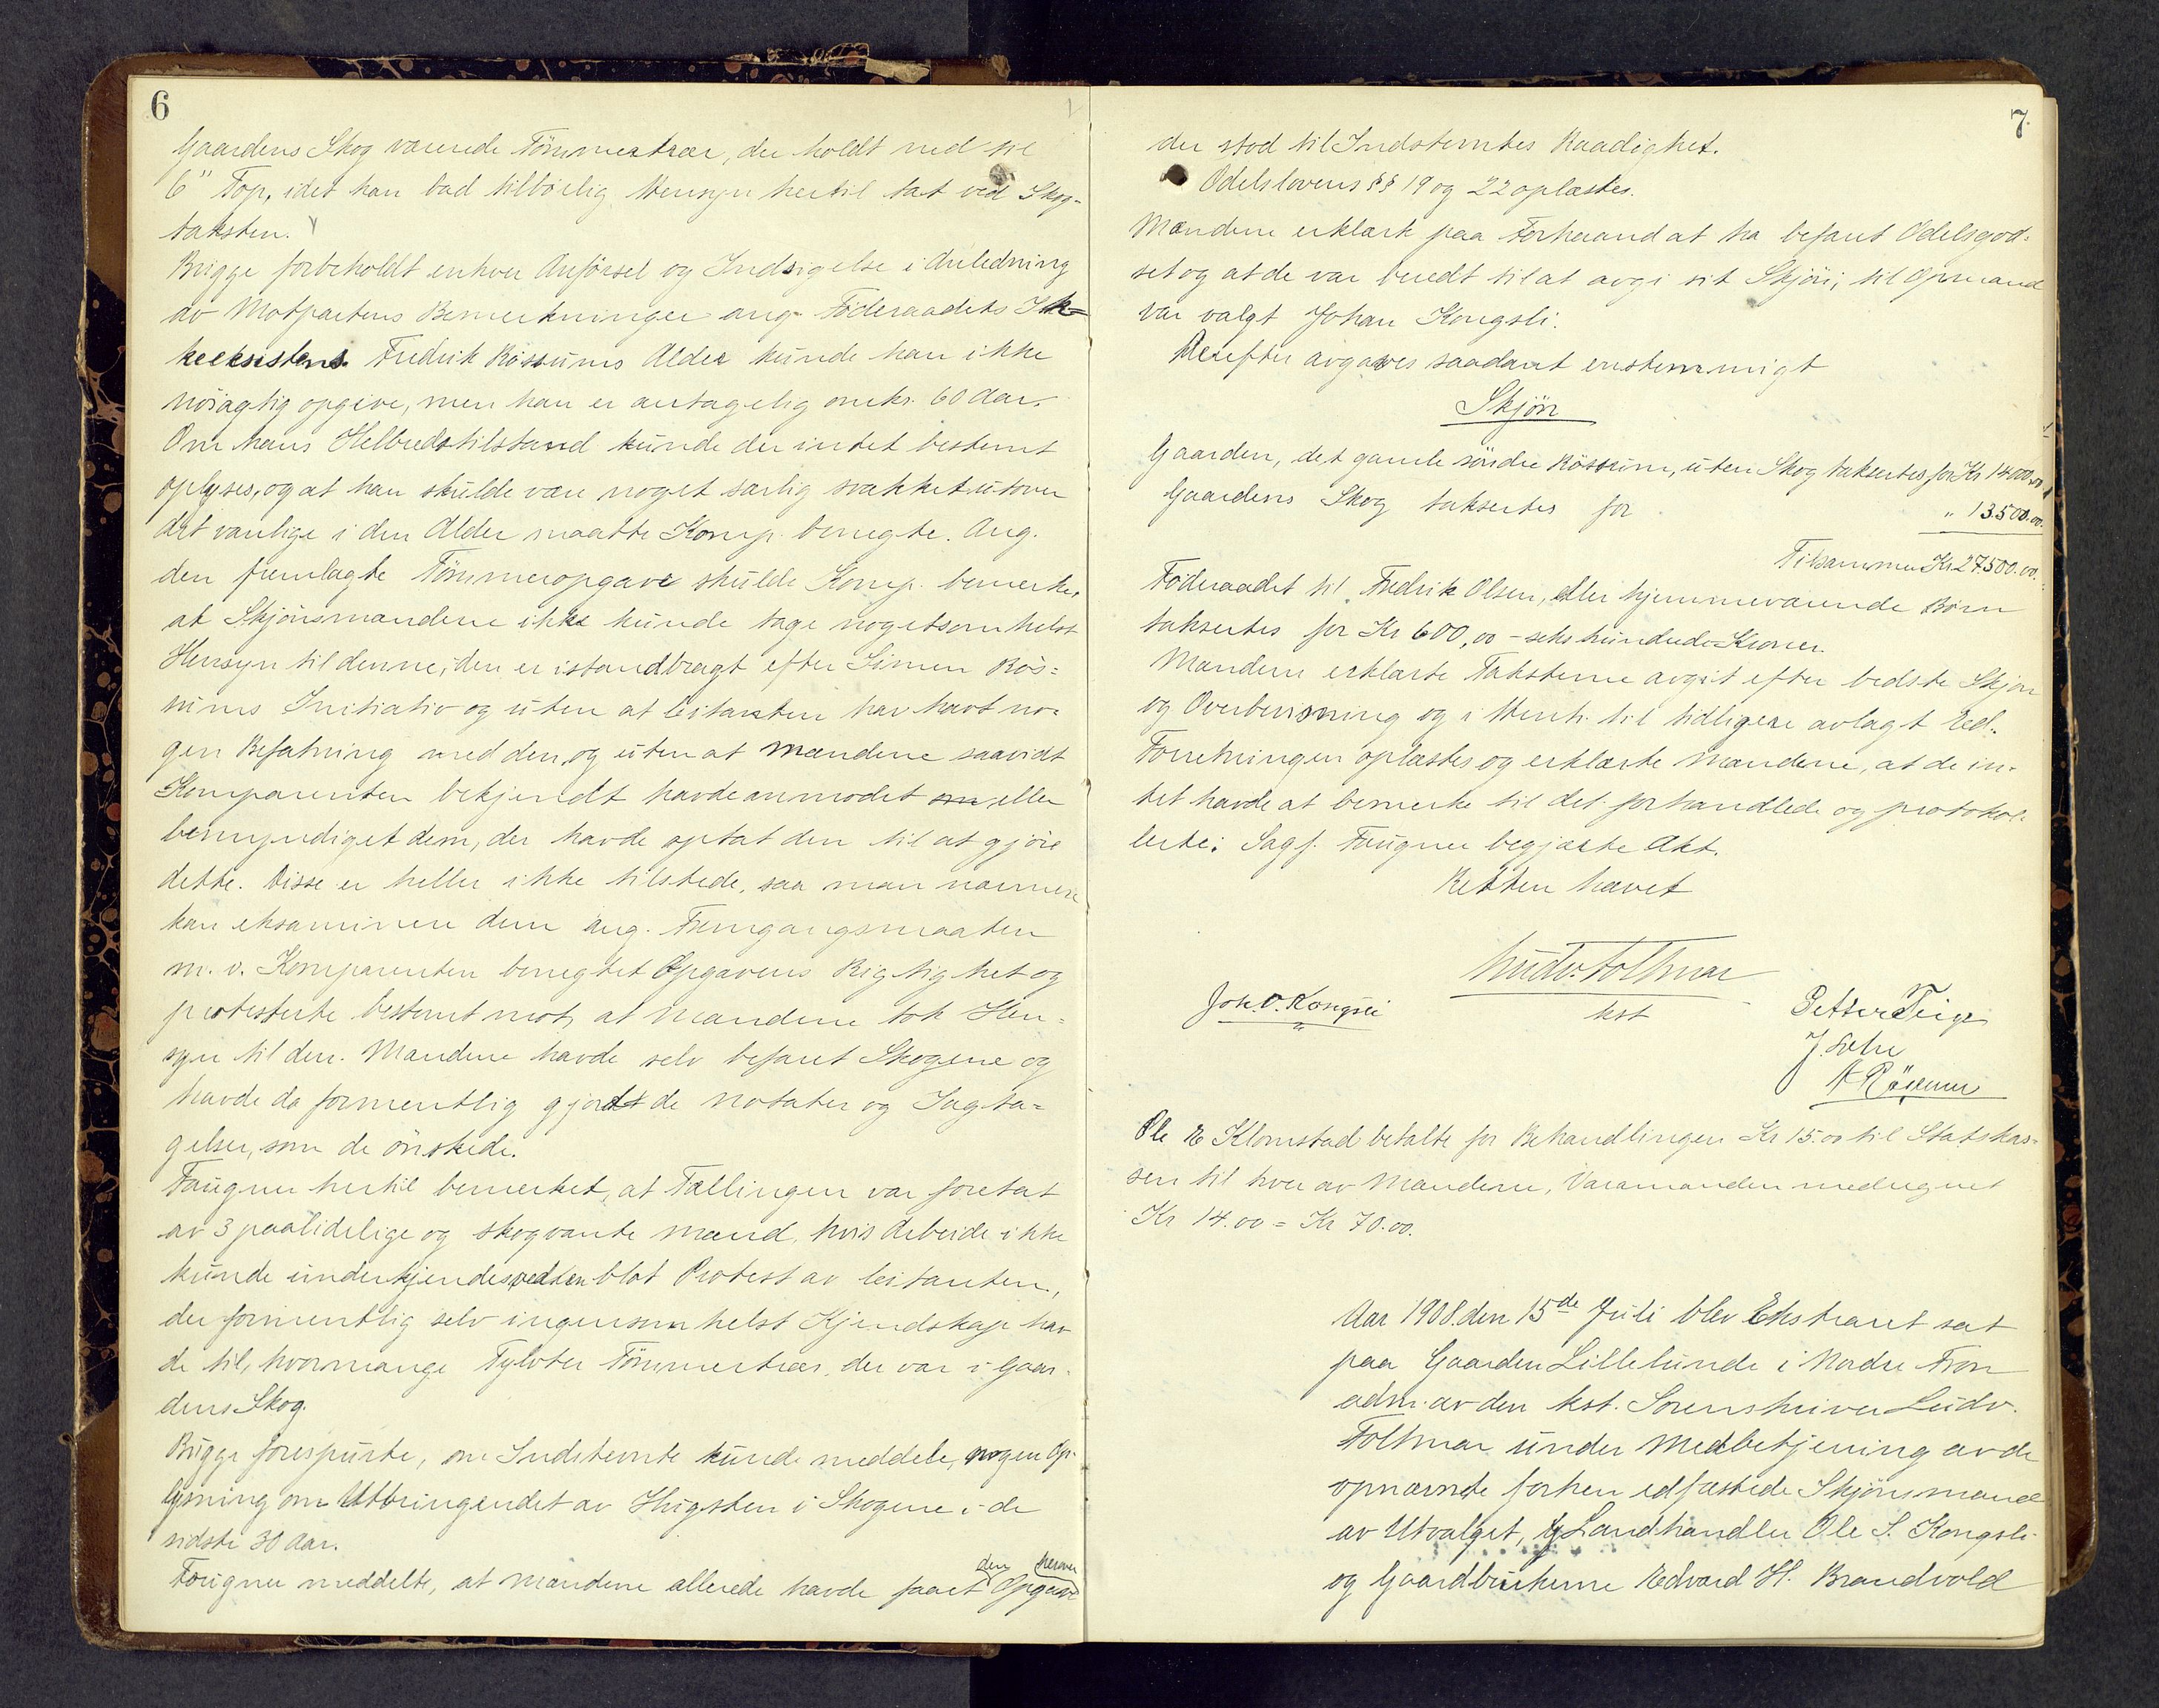 6
Gaardens Skog værende Tømmertrær, der holdt ned til
6" Top, idet han bad tilbørlig Hensyn hertil tat ved Skog-
taksten.
Brigge forbeholdt enhver Anførsel og Indsigelse i Anledning
av Motpartens Bemerkninger ang. Føderaadets Ik-
keeksistens. Fredrik Røssums Alder kunde han ikke
nøiagtig opgive, men han er antagelig omkr. 60 Aar.
Om hans Helbredstilstand kunde der intet bestemt
oplyses, og at han skulde være noget særlig svækket utover
det vanlige i den Alder maatte Komp. benegte. Ang.
den fremlagte Tømmeropgave skulde Komp. bemerke,
at Skjønsmændene ikke kunde tage nogetsomhelst
Hensyn til denne; den er istandbragt efter Simen Røs-
sums Initiativ og uten at Citanten har havt no-
gen Befatning med den, og uten at Mændene saavidt
Komparenten bekjendt havde anmodet om, eller
bemyndiget dem, der havde optat den til at gjøre
dette. Disse er heller ikke tilstede, saa man nærmere
kan eksaminere dem ang. Fremgangsmaaten
m. v. Komparenten benegtet Opgavens Rigtighet og
protesterte bestemt mot, at Mændene tok Hen-
syn til den. Mændene havde selv befaret Skogene og
havde da formentlig gjordt de Notater og Iagtta-
gelser, som de ønskede.
Fougner hertil bemerket, at Tællingen var foretat
av 3 paalidelige og skogvante Mænd, hvis Arbeide ikke
kunde underkjendes ved en blot Protest av Citanten,
der formentlig selv ingensomhelst Kjendskap hav-
de til, hvormange Tylvter Tømmertrær, der var i Gaar-
dens Skog.
Brigge forespurte, om Indstevnte kunde meddele nogen Op-
lysning om Utbringendet av Hugsten i Skogene i de
sidste 30 Aar.
Fougner meddelte, at Mændene allerede havde faaet den Opgave herover
7.
der stod til Indstevntes Raadighet.
Odelslovens §§ 19 og 22 oplæstes.
Mændene erklært paa Forhaand at ha befaret Odelsgod-
set og at de var beredt til at avgi sit Skjøn; til Opmand
var valgt Johan Kongsli.
Derefter avgaves saadant enstemmigt
Skjøn
Gaarden, det gamle søndre Røssum, uten Skog takseertes for Kr 14000.00
Gaardens Skog taksertes for " 13.500.00.
Tilsammen Kr 27.500.00.
Føderaadet til Fredrik Olsen, eller hjemmeværende Børn
taksertes for Kr 600,00 - seks hundrede Kroner.
Mændene erklærte Taksterne avgit efter bedste Skjøn
og Overbevisning og i Henh. til tidligere avlagt Ed.
Forretningen oplæstes og erklærte Mændene, at de in-
tet havde at bemerke til det forhandlede og protokol-
lerte. Sagf. Fougner begjærte Akt.
Retten hævet
Ludv. Tollnar
kst
Joh. O. Kongsli
Petter Teige
J. Lohre
Ole E Klomstad betalte for Behandlingen Kr 15.00 til Statskas-
sen til hver av Mændene, Varamanden medregnet
Kr 14.00 = Kr 70.00.
Aar 1908 den 15de Juli blev Ekstraret sat
paa Gaarden Lillelunde i Nordre Fron
adm. av den kst. Sorenskriver Ludv.
Tollnar under Medbetjening av de
opnævnte forhen edfæstede Skjønsmænd
av Utvalget, Landhandler Ole S. Kongsli
og Gaardbrukerne Edvard H. Brandvold